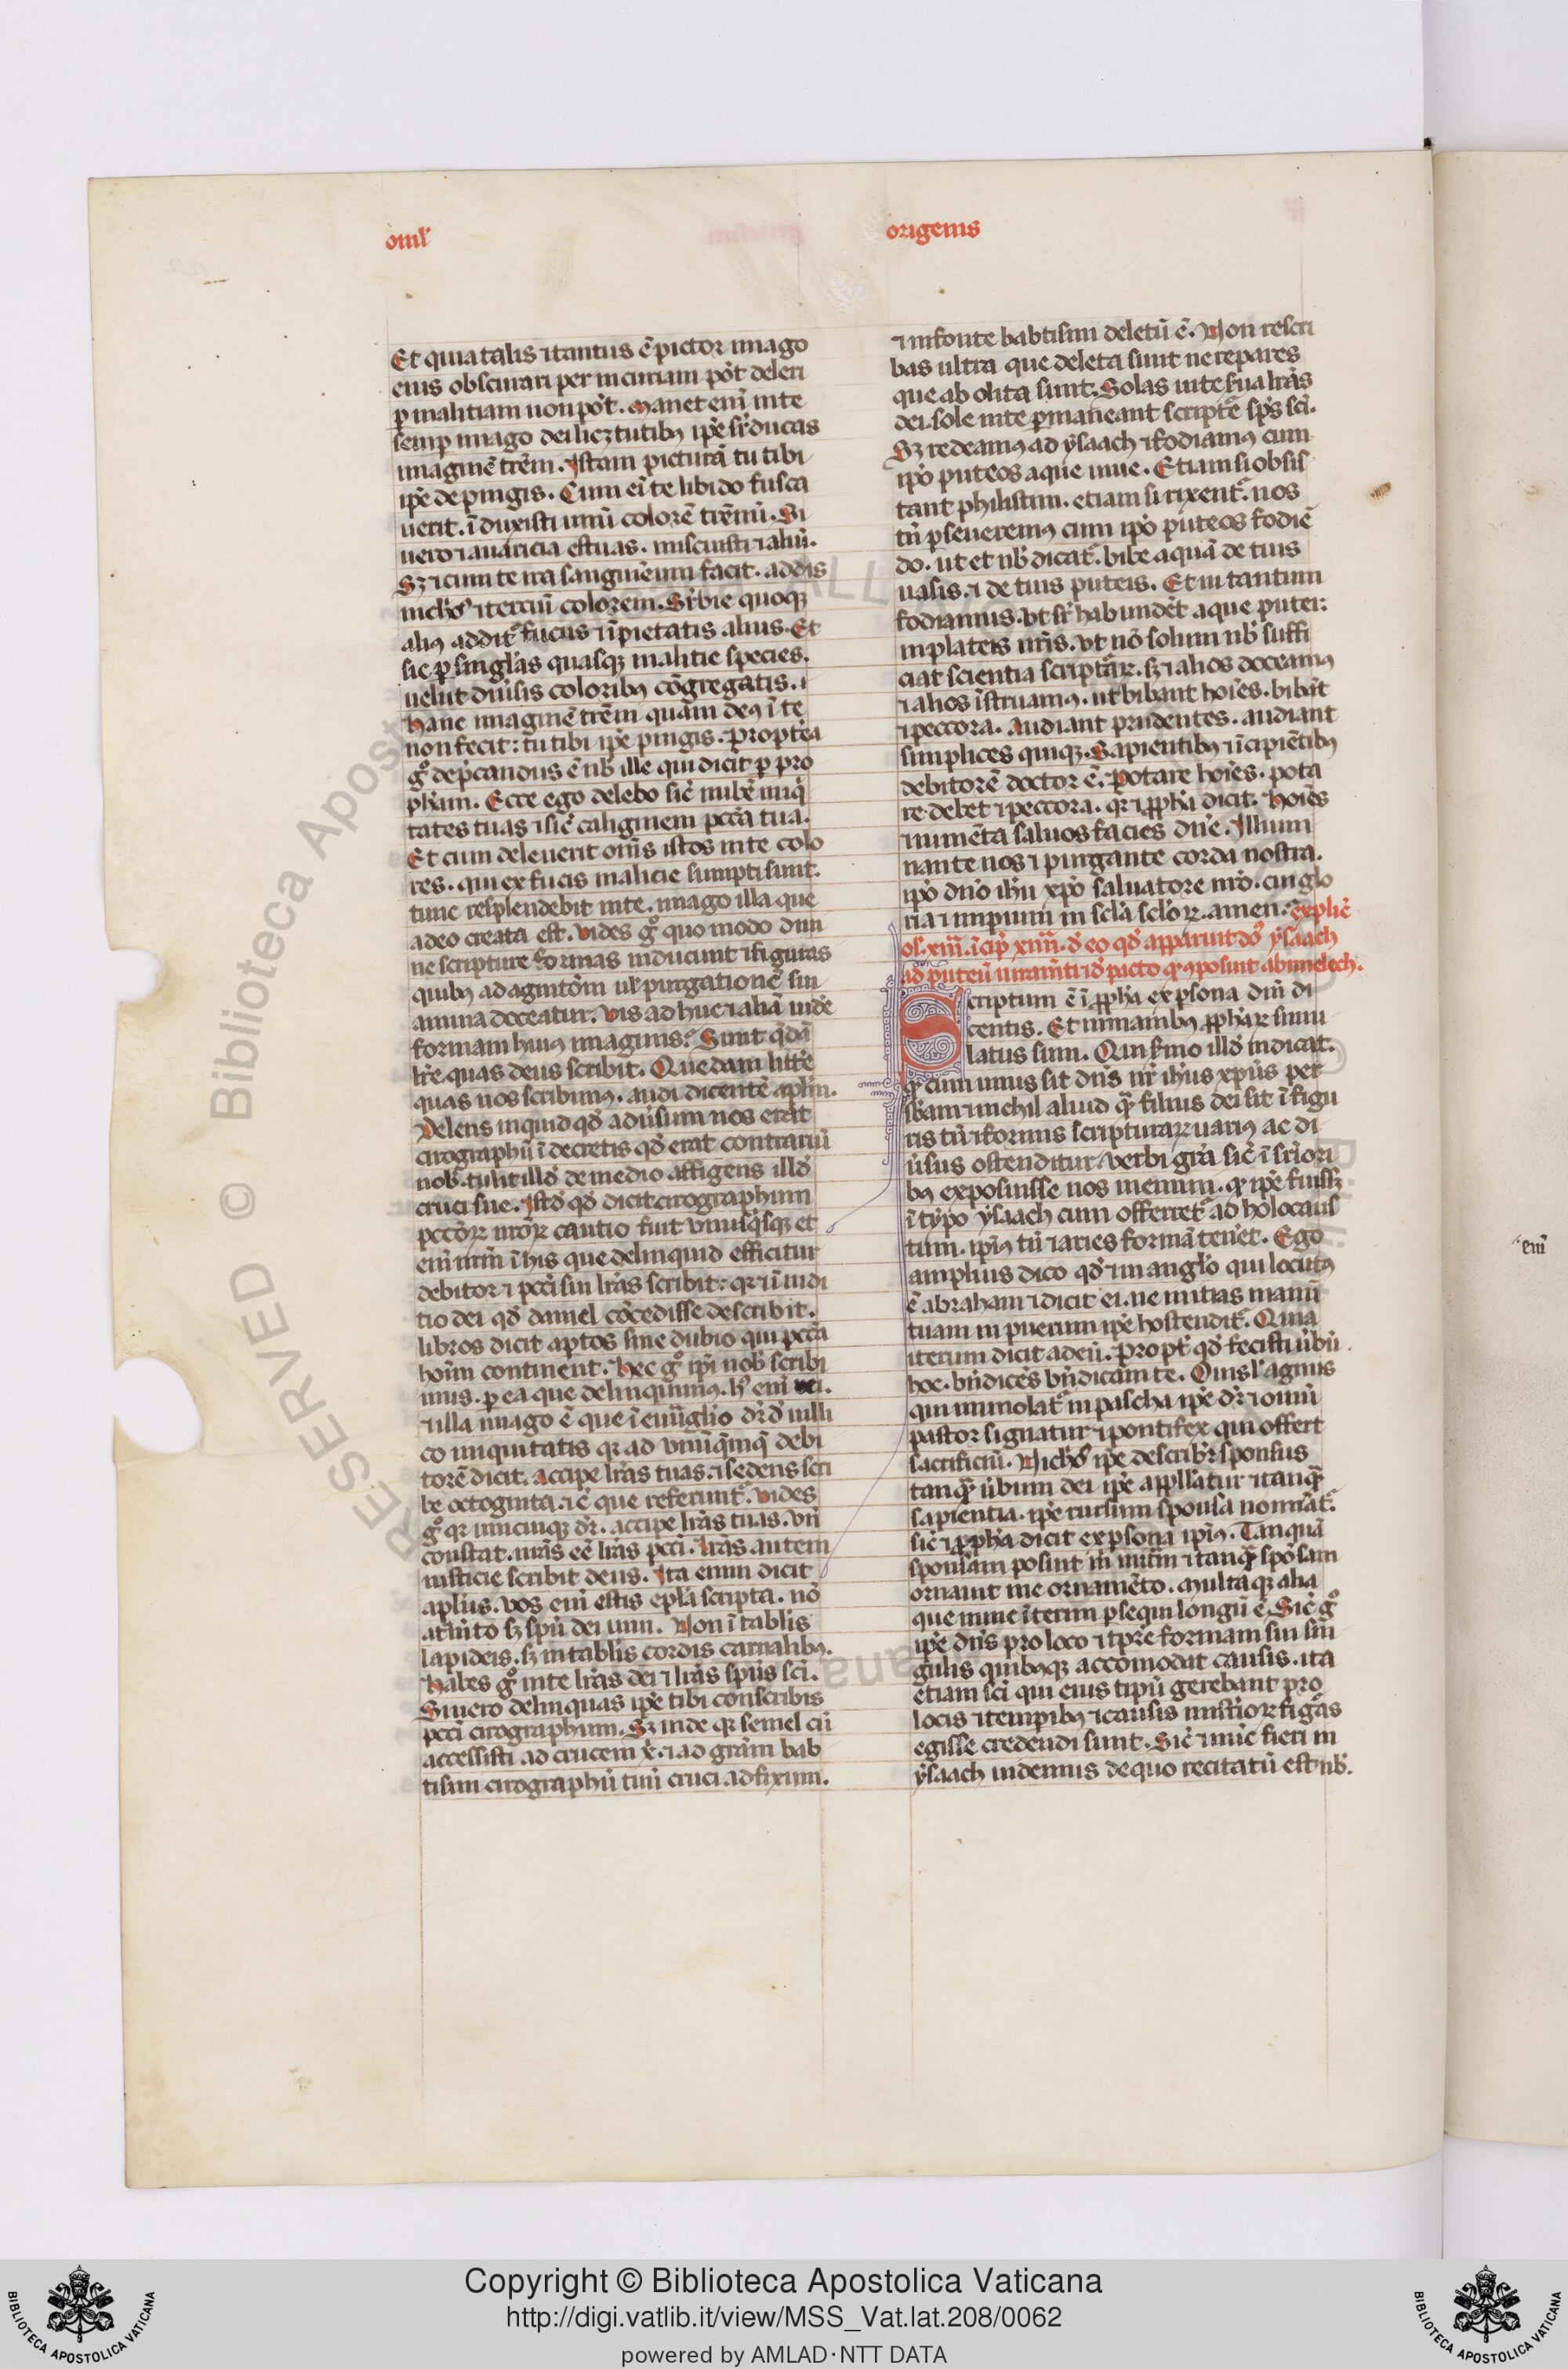 oml'
origenis
Et quia talis ⁊ tantus ē pictor imago
eius obscurari per incuriam pōt deleri
ꝑ malitiam non pōt. Manet eni᷒ in te
semp imago dei licꝫ tu tibi ip̄e sr̄ducas
imaginē tr̄em. Istam picturā tu tibi
ip̄e depingis. Cum ei᷒ te libido fusca
uerit. īduxisti unū colorē tr̄enū. Si
uero ⁊ auaricia estuas. miscuisti ⁊ aliū.
Sꝫ ⁊ cum te ira sanguineum facit. addis
nichō ⁊ terciū colorem. Sr̄bie quoqꝫ
aliꝰ addit̄ fucus ⁊ īpietatis alius. Et
sic ꝑ singl'as quasqꝫ malitie species.
uelut diu̾sis coloribꝰ cōgregatis. ⁊
Hanc imaginē tr̄em quam deꝰ ī te
non fecit: tu tibi ip̄e pingis. Propt̄ea
gͦ dep̄candus ē nb̄ ille qui dicit ꝑ pro
ph̄am. Ecce ego delebo sic̄ nubē iniq̄
tates tuas ⁊ sic̄ caliginem pcc̄a tua.
Et cum deleuerit om̄s istos in te colo
res. qui ex fucis malicie sumpti sunt.
tunc resplendebit in te. imago illa que
a deo creata est. Vides gͦ quo modo diui
ne scripture formas inducunt ⁊ figuras
quibꝰ ad agnitōm ul' purgationē sui
anima doceatur. Vis ad huc ⁊ aliā uide
formam huiꝰ imaginis? Sunt q̄dā
lr̄e. quas deus scribit. Quedam litt̄e
quas nos scribimꝰ. audi dicentē apl'm.
Delens inquid qd̄ adu̾sum nos erat
cirographū ī decretis qd̄ erat contrariū
nob̄. tulit illd̄ de medio affigens illd̄
cruci sue. Istd̄ qd̄ dicit cirographum
pcc̄oꝝ nr̄oꝝ cautio fuit Vnusq̄sqꝫ et
eni᷒ nr̄m ī his que delinquid efficitur
debitor ⁊ pcc̄i sui lr̄as scribit: qꝛ ⁊ ī iudi
tio dei qd̄ daniel cōcedisse describit.
libros dicit aptos sine dubio qui pcc̄a
hoīm continent. Hec gͦ ip̄i nob̄ scribi
mus. ꝑ ea que delinquimꝰ. hͦ eni᷒
⁊ illa imago ē que ī eua̅glio dr̄ d̄ uilli
co iniquitatis qꝛ ad vnūq̄mq̄ debi
torē dicit. accipe lr̄as tuas. ⁊ sedens scri
be octoginta. ⁊ c̄ que referunt̄. Vides
gͦ qꝛ unicuiqꝫ dr̄. accipe lr̄as tuas. Vn̄
constat. nr̄as eē lr̄as pcc̄i. lr̄as autem
iusticie scribit deus. Ita enim dicit
apl'us. Vos eni᷒ estis epl'a scripta. nō
atm̄to sꝫ spū dei uiui. Non ī tablis
lapideis. sꝫ in tabl'is cordis carnalibꝰ.
Habes gͦ in te lr̄as dei ⁊ lr̄as sp̄us sc̄i.
Si uero delinquas ip̄e tibi conscribis
pcc̄i cirographum. Sꝫ inde qꝛ semel cū
accessisti ad crucem x̄. ⁊ ad gr̄am bab
tisim cirographū tuū cruci adfixum.
⁊ in fonte babtisim deletū ē. Non rescri
bas ultra que deleta sunt ne repares
que ab olita sunt. Solas in te ..ua lr̄as
dei. sole in te ꝑmaneant scriptē sp̄s sc̄i.
Sꝫ redeamꝰ ad ysaach ⁊ fodiamꝰ cum
ip̄o puteos aque uiue. Etiam si obsis
tant philistini. etiam si rixent̄. nos
tn̄ ꝑseueremꝰ cum ip̄o puteos fodiē
do. ut et nb̄ dicat̄. bibe aquā de tuis
uasis. ⁊ de tuis puteis. Et in tantum
fodiamus. vt sr̄ habundēt aque putei:
in plateis nr̄is. vt nō solum nb̄ suffi
ciat scientia scriptaꝝ. sꝫ ⁊ alios doceamꝰ
⁊ alios īstruamꝰ. ut bibant hoīes. bibāt
⁊ peccora. Audiant prudentes. audiant
simplices quiqꝫ. Sapientibꝰ ⁊ īcipiētibꝰ
debitorē doctor ē. Potare hoīes. pota
re debet ⁊ peccora. qꝛ ⁊ ꝓph̄a dicit. Hoīes
⁊ iumēta saluos facies dn̄e. Illumi
nante nos ⁊ purgante corda nostra.
ip̄o dn̄o ih̄u xp̄o saluatore nr̄o. cui glo
ria ⁊ imp̄ium in scl'a scl'oꝝ. amen. explic̄
ol'. xiii. īcip̄ xiiii. d̄ eo qd̄ apparuit dō ysaach
ad puteū iuramti ⁊ d̄ pacto qͦ ꝯposuit abimelech.
Scriptum ē ī ꝓph̄a ex ꝑsona dn̄i di
centis. Et ī manibꝰ ꝓph̄aꝝ simi
latus sum. Qui s̄mo illd̄ indicat.
qꝛ cum unus sit dn̄s nr̄ ih̄us xp̄us per
sb̄am ⁊ nichil aliud qꝫ filius dei sit ī figu
ris tn̄ ⁊ formis scripturaꝝ uariꝰ ac di
u̾sus ostenditur. Verbi gr̄a sic̄ ī sr̄iori
bꝰ exposuisse nos memini. qꝛ ip̄e fuissꝫ
ī typo ysaach cum offerret̄ ad holocaus
tum. ip̄iꝰ tn̄ ⁊ aries formā tenet. Ego
amplius dico qd̄ ⁊ in angl'o qui locutꝰ
ē abraham ⁊ dicit ei. ne mittas manū
tuam in puerum ip̄e hostendit̄. Quia
iterum dicit ad eū. Propt̄ qd̄ fecisti ūbū
hoc. bn̄dicēs bn̄dicam te. Ouis l' agnus
qui immolat̄ in pascha ip̄e dr̄ ⁊ ouiū
pastor signatur ⁊ pontifex qui offert
sacrificiū. Nichō ip̄e describr̄ sponsus
tanqꝫ ūbum dei ip̄e appll'atur ⁊ tanqꝫ
sapientia. ip̄e rursum sponsa nomīat̄.
sic̄ ⁊ ꝓph̄a dicit ex ꝑsona ip̄iꝰ. Tanquā
sponsam posuit m̄ mitm̄ ⁊ tanqꝫ spōsam
ornauit me ornamēto. multaqꝫ alia
que nunc īterim ꝑsequi longū ē. Sic̄ gͦ
ip̄e dn̄s pro loco ⁊ tp̄re formam sui sin
gulis quibꝰqꝫ accomodat causis. ita
etiam sc̄i qui eius tipū gerebant pro
locis ⁊ tempibꝰ ⁊ causis mist̄ioꝝ figᵃs
egisse credendi sunt. Sic̄ ⁊ nūc fieri in
ysaach uidemus de quo recitatū est nb̄.
eni᷒
Copyright © Biblioteca Apostolica Vaticana
http://digi.vatlib.it/view/MSS_Vat.lat.208/0062
powered by AMLAD·NTT DATA
BIBLIOTECA APOSTOLICA VATICANA
BIBLIOTECA APOSTOLICA VATICANA